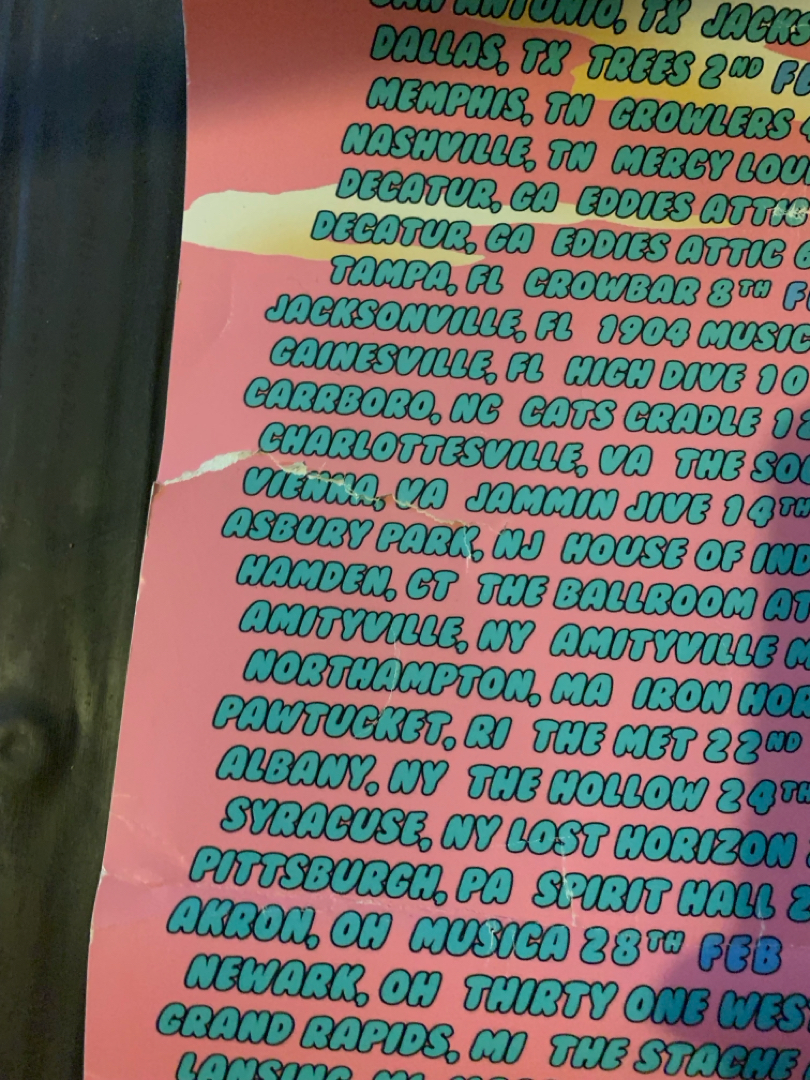 SAN ANTONIO, TX JACKS
DALLAS, TX TREES 2ND FE
MEMPHIS, TN GROWLERS
NASHVILLE, TN MERCY LOU
DECATUR, GA EDDIES ATTIC
DECATUR, GA EDDIES ATTIC 6
TAMPA, FL CROWBAR 8TH F
JACKSONVILLE, FL 1904 MUSIC
GAINESVILLE, FL HIGH DIVE 10
CARRBORO, NC CATS CRADLE 1
CHARLOTTESVILLE, VA THE SO
VIENNA, VA JAMMIN JIVE 14TH
ASBURY PARK, NJ HOUSE OF IND
HAMDEN, CT THE BALLROOM AT
AMITYVILLE, NY AMITYVILLE M
NORTHAMPTON, MA IRON HOR
PAWTUCKET, RI THE MET 22ND
ALBANY, NY THE HOLLOW 24TH
SYRACUSE, NY LOST HORIZON
PITTSBURGH, PA SPIRIT HALL 2
AKRON, OH MUSICA 28TH FEB
NEWARK, OH THIRTY ONE WES
GRAND RAPIDS, MI THE STACHE
LANSING, MI